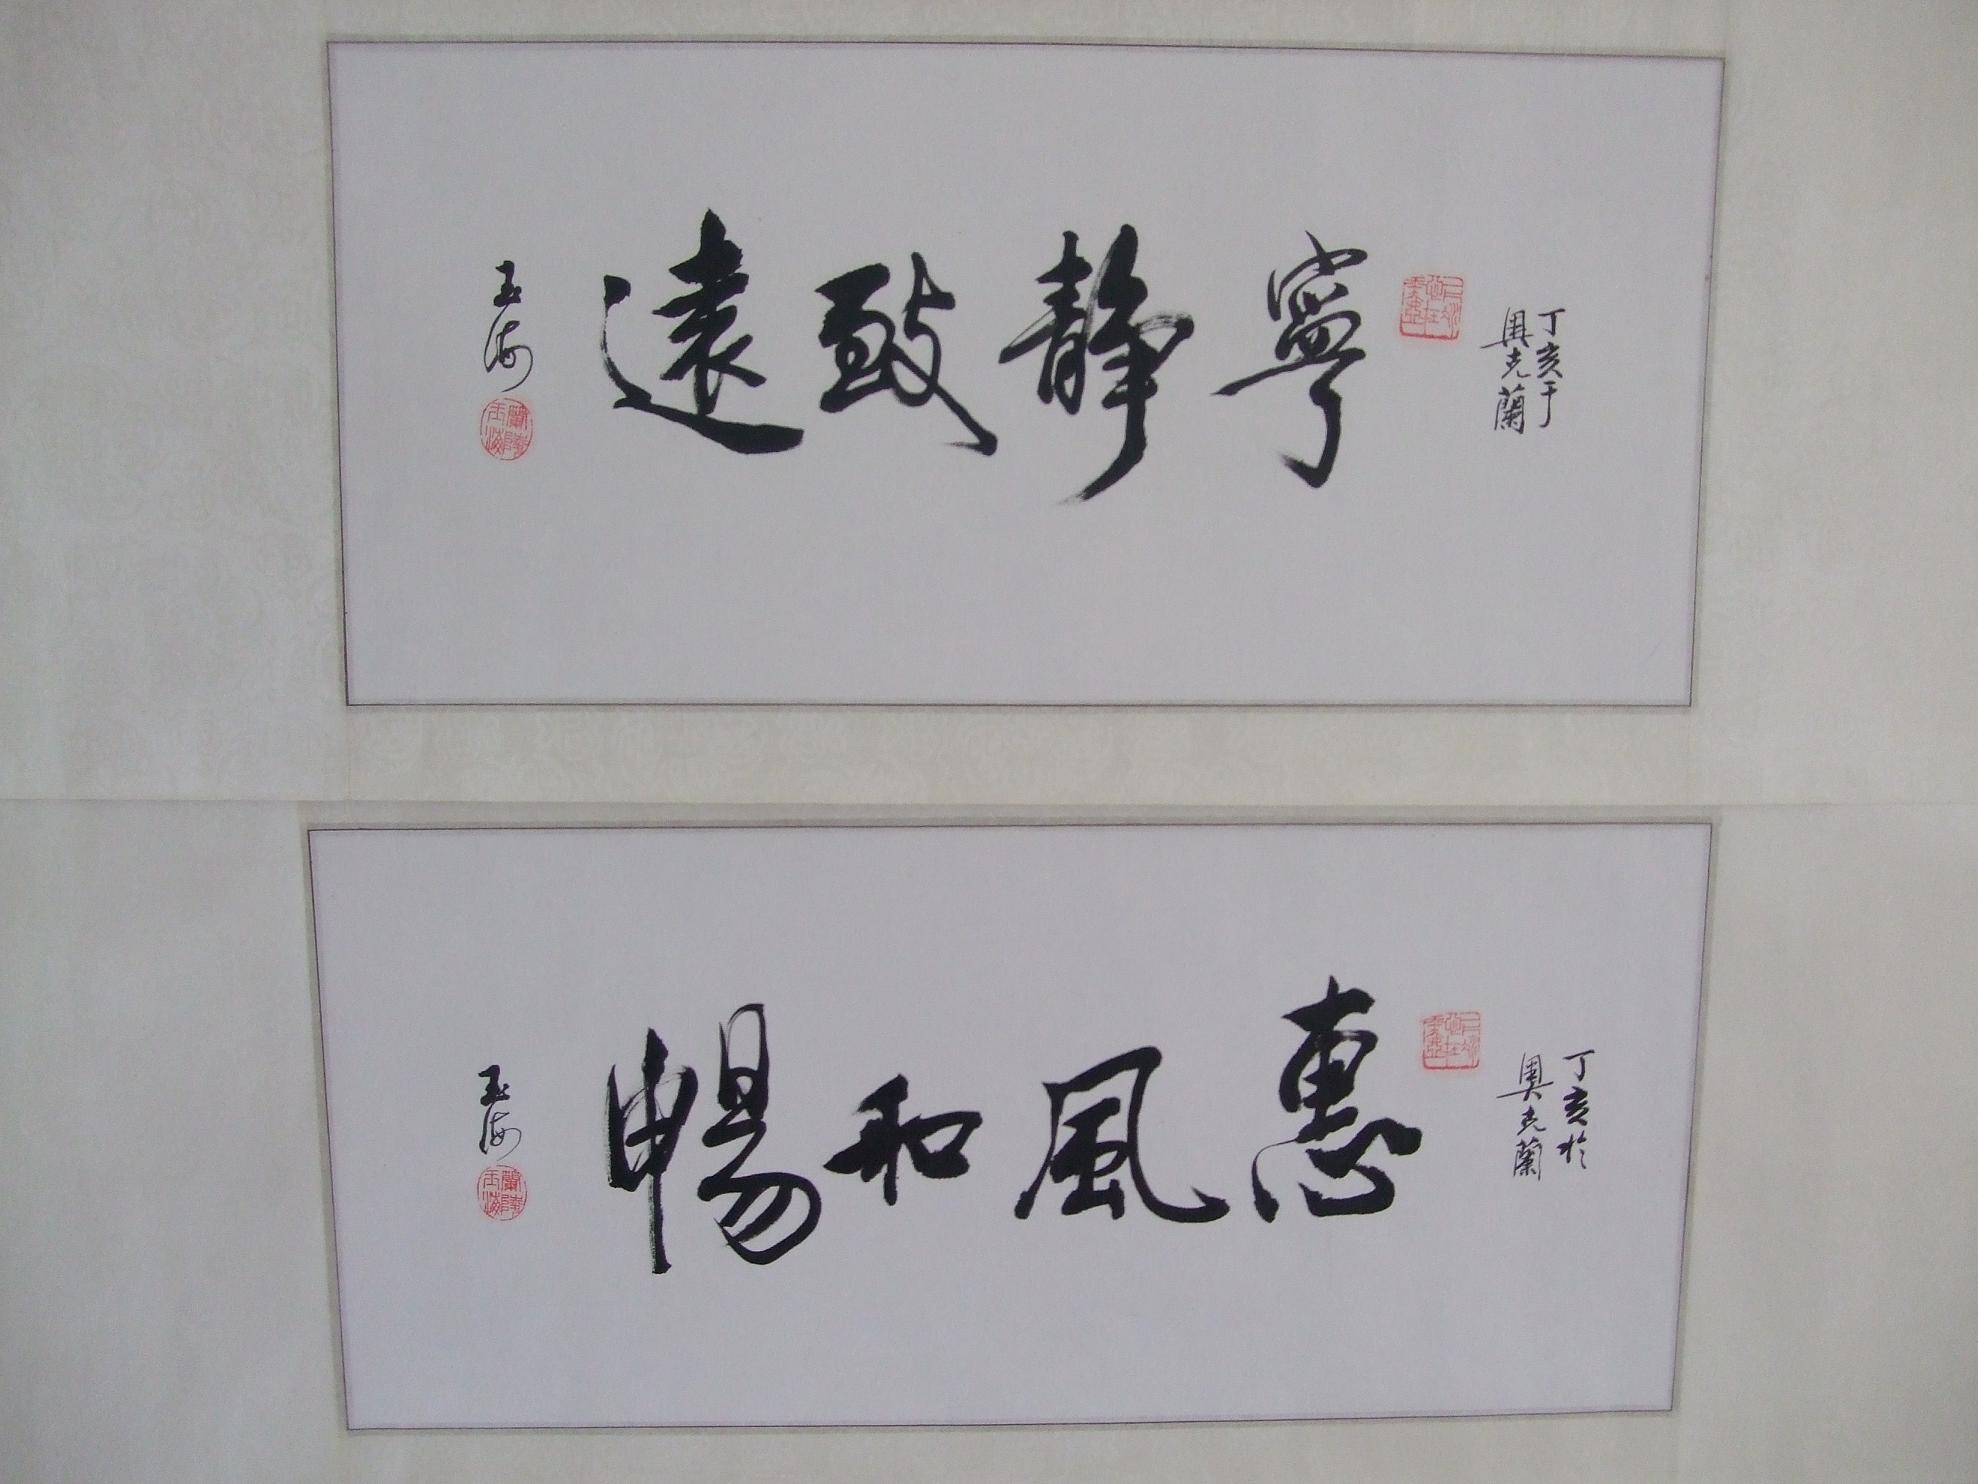 丁亥于
奥克蘭
寧静致遠
玉海
丁亥於
奥克蘭
惠風和暢
玉海